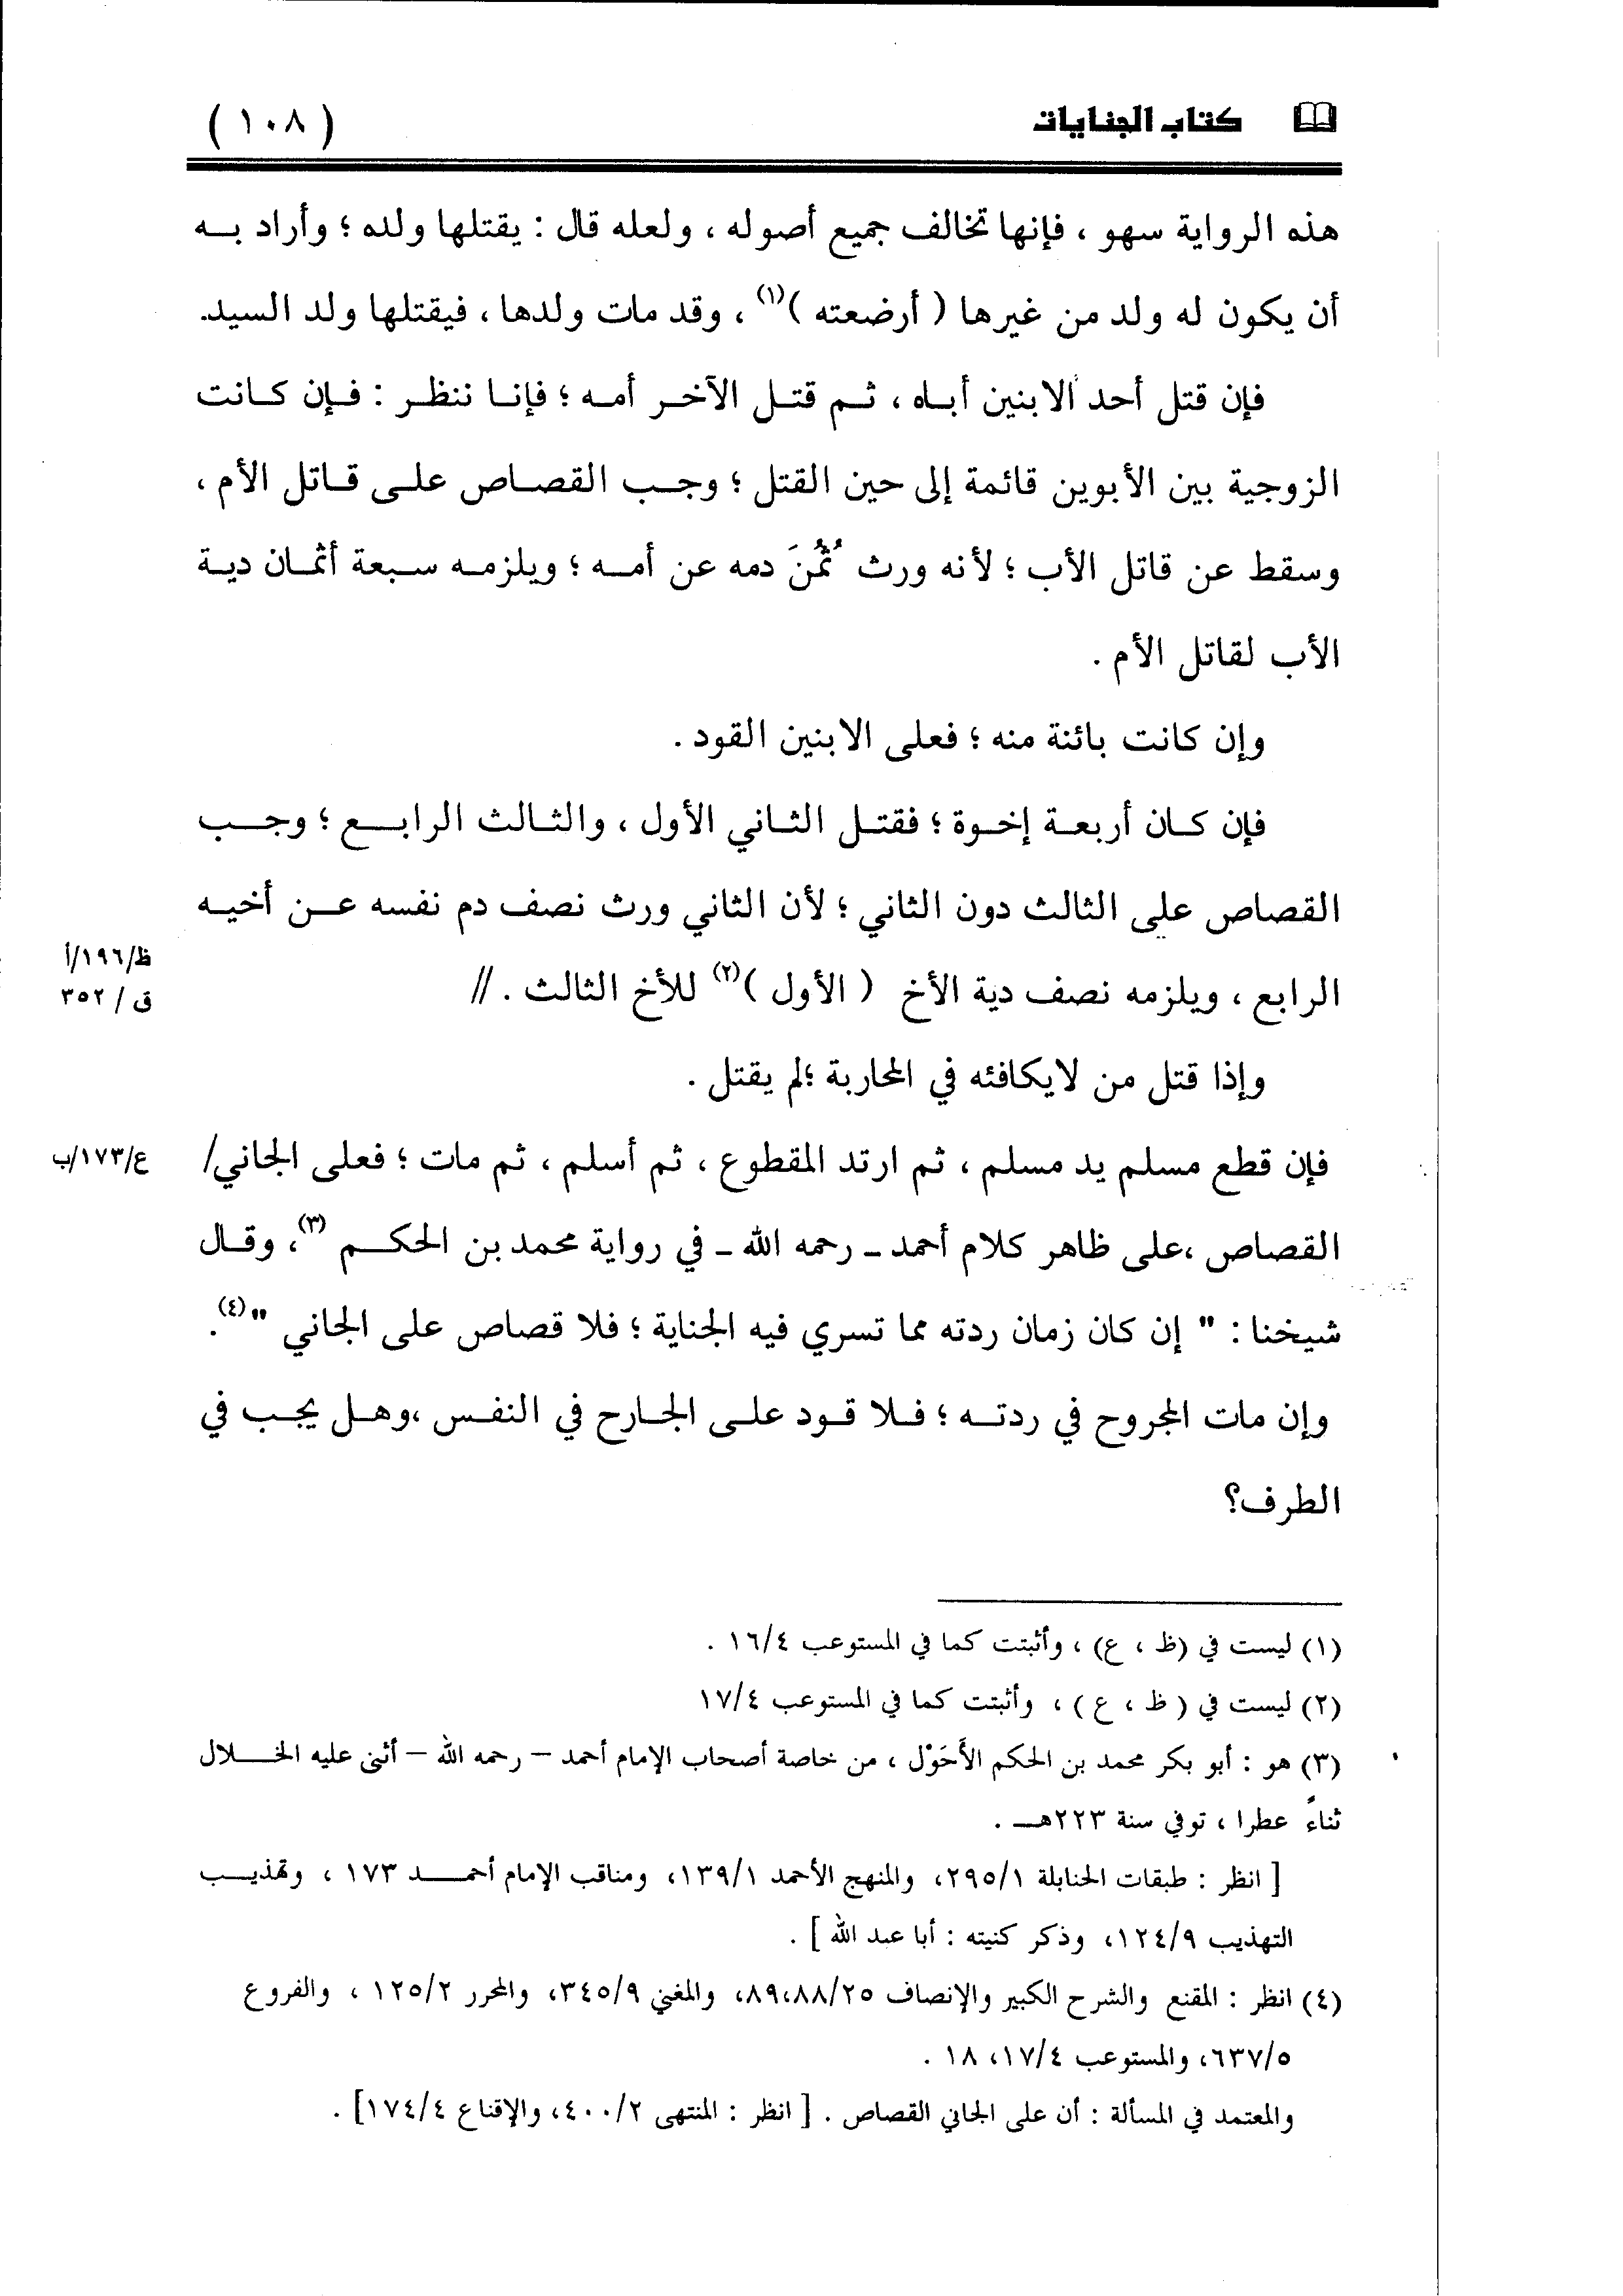 كتاب الجنايات
( ١٠٨ )
هذه الرواية سهو ، فإنها تخالف جميع أصوله ، ولعله قال : يقتلها ولده ؛ وأراد به
أن يكون له ولد من غيرها ( أرضعته )(١) ، وقد مات ولدها ، فيقتلها ولد السيد.
فإن قتل أحد الابنين أباه ، ثم قتل الآخر أمه ؛ فإنا ننظر : فإن كانت
الزوجية بين الأبوين قائمة إلى حين القتل ؛ وجب القصاص على قاتل الأم ،
وسقط عن قاتل الأب ؛ لأنه ورث ثُمُنَ دمه عن أمه ؛ ويلزمه سبعة أثمان دية
الأب لقاتل الأم .
وإن كانت بائنة منه ؛ فعلى الابنين القود .
فإن كان أربعة إخوة ؛ فقتل الثاني الأول ، والثالث الرابع ؛ وجب
القصاص على الثالث دون الثاني ؛ لأن الثاني ورث نصف دم نفسه عن أخيه
ظ/١٩٦/أ
الرابع ، ويلزمه نصف دية الأخ ( الأول )(٢) للأخ الثالث . //
ق / ٣٥٢
وإذا قتل من لايكافئه في المحاربة ؛لم يقتل .
فإن قطع مسلم يد مسلم ، ثم ارتد المقطوع ، ثم أسلم ، ثم مات ؛ فعلى الجاني/
ع/١٧٣/ب
القصاص ،على ظاهر كلام أحمد ـ رحمه الله ـ في رواية محمد بن الحكم (٣)، وقال
شيخنا : " إن كان زمان ردته مما تسري فيه الجناية ؛ فلا قصاص على الجاني "(٤).
وإن مات المجروح في ردته ؛ فلا قود على الجارح في النفس ،وهل يجب في
الطرف؟
(١) ليست في (ظ ، ع) ، وأثبتت كما في المستوعب ١٦/٤ .
(٢) ليست في ( ظ ، ع ) ، وأثبتت كما في المستوعب ١٧/٤
(٣) هو : أبو بكر محمد بن الحكم الأَحَوْل ، من خاصة أصحاب الإمام أحمد – رحمه الله – أثنى عليه الخلال
ثناءً عطرا ، توفي سنة ٢٢٣هـ .
[ انظر : طبقات الحنابلة ٢٩٥/١، والمنهج الأحمد ١٣٩/١، ومناقب الإمام أحمد ١٧٣ ، وتهذيب
التهذيب ١٢٤/٩، وذكر كنيته : أبا عبد الله ] .
(٤) انظر : المقنع والشرح الكبير والإنصاف ٨٩،٨٨/٢٥، والمغني ٣٤٥/٩، والمحرر ١٢٥/٢ ، والفروع
٦٣٧/٥، والمستوعب ١٧/٤، ١٨ .
والمعتمد في المسألة : أن على الجاني القصاص . [ انظر : المنتهى ٤٠٠/٢، والإقناع ١٧٤/٤] .